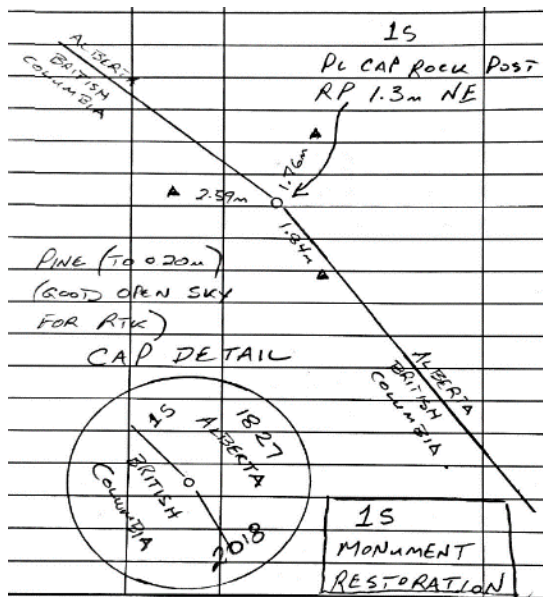 1S
PL CAP ROCK POST
RP 1.3m NE
ALBERTA
BRITISH
COLUMBIA
1.76m
2.59m
1.84m
PINE (TO 0.20m)
(GOOD OPEN SKY
FOR RTK)
CAP DETAIL
ALBERTA
BRITISH
COLUMBIA
1S
1827
ALBERTA
BRITISH
COLUMBIA
2018
1S
MONUMENT
RESTORATION